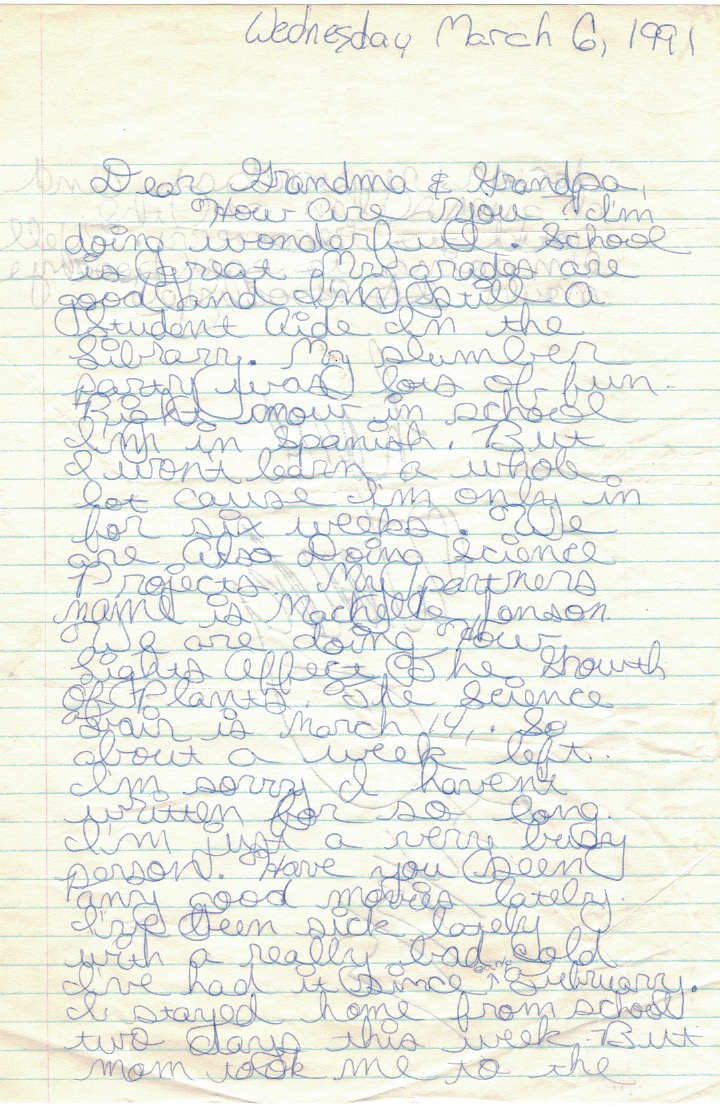 Wednesday March 6, 1991
Dear Grandma & Grandpa,
How are you? I'm
doing wonderfull. School
is great. My grades are
good and I'm still a
Student Aide In the
Library. My slumber
party was lots of fun.
Right now in school
I'm in Spanish. But
I wont learn a whole
lot cause I'm only in
for six weeks. We
are Also Doing Science
Projects. My partners
name is Machelle Jonson
We are doing How
Lights Affect The Growth
Of Plants. The Science
Fair is March 14,. So
about a week left.
I'm sorry I havent
written for so long.
I'm just a very budy
person. Have you seen
any good movies lately.
I've Been sick lately
with a really bad Cold
I've had it since February.
I stayed home from school
two days this week. But
mom took me to the